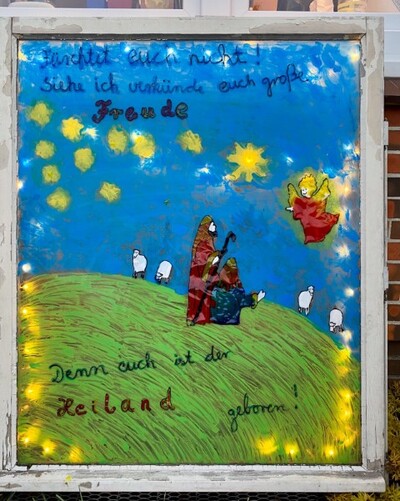 Fürchtet euch nicht!
Siehe ich verkünde euch große
Freude
Denn euch ist der
Heiland geboren!